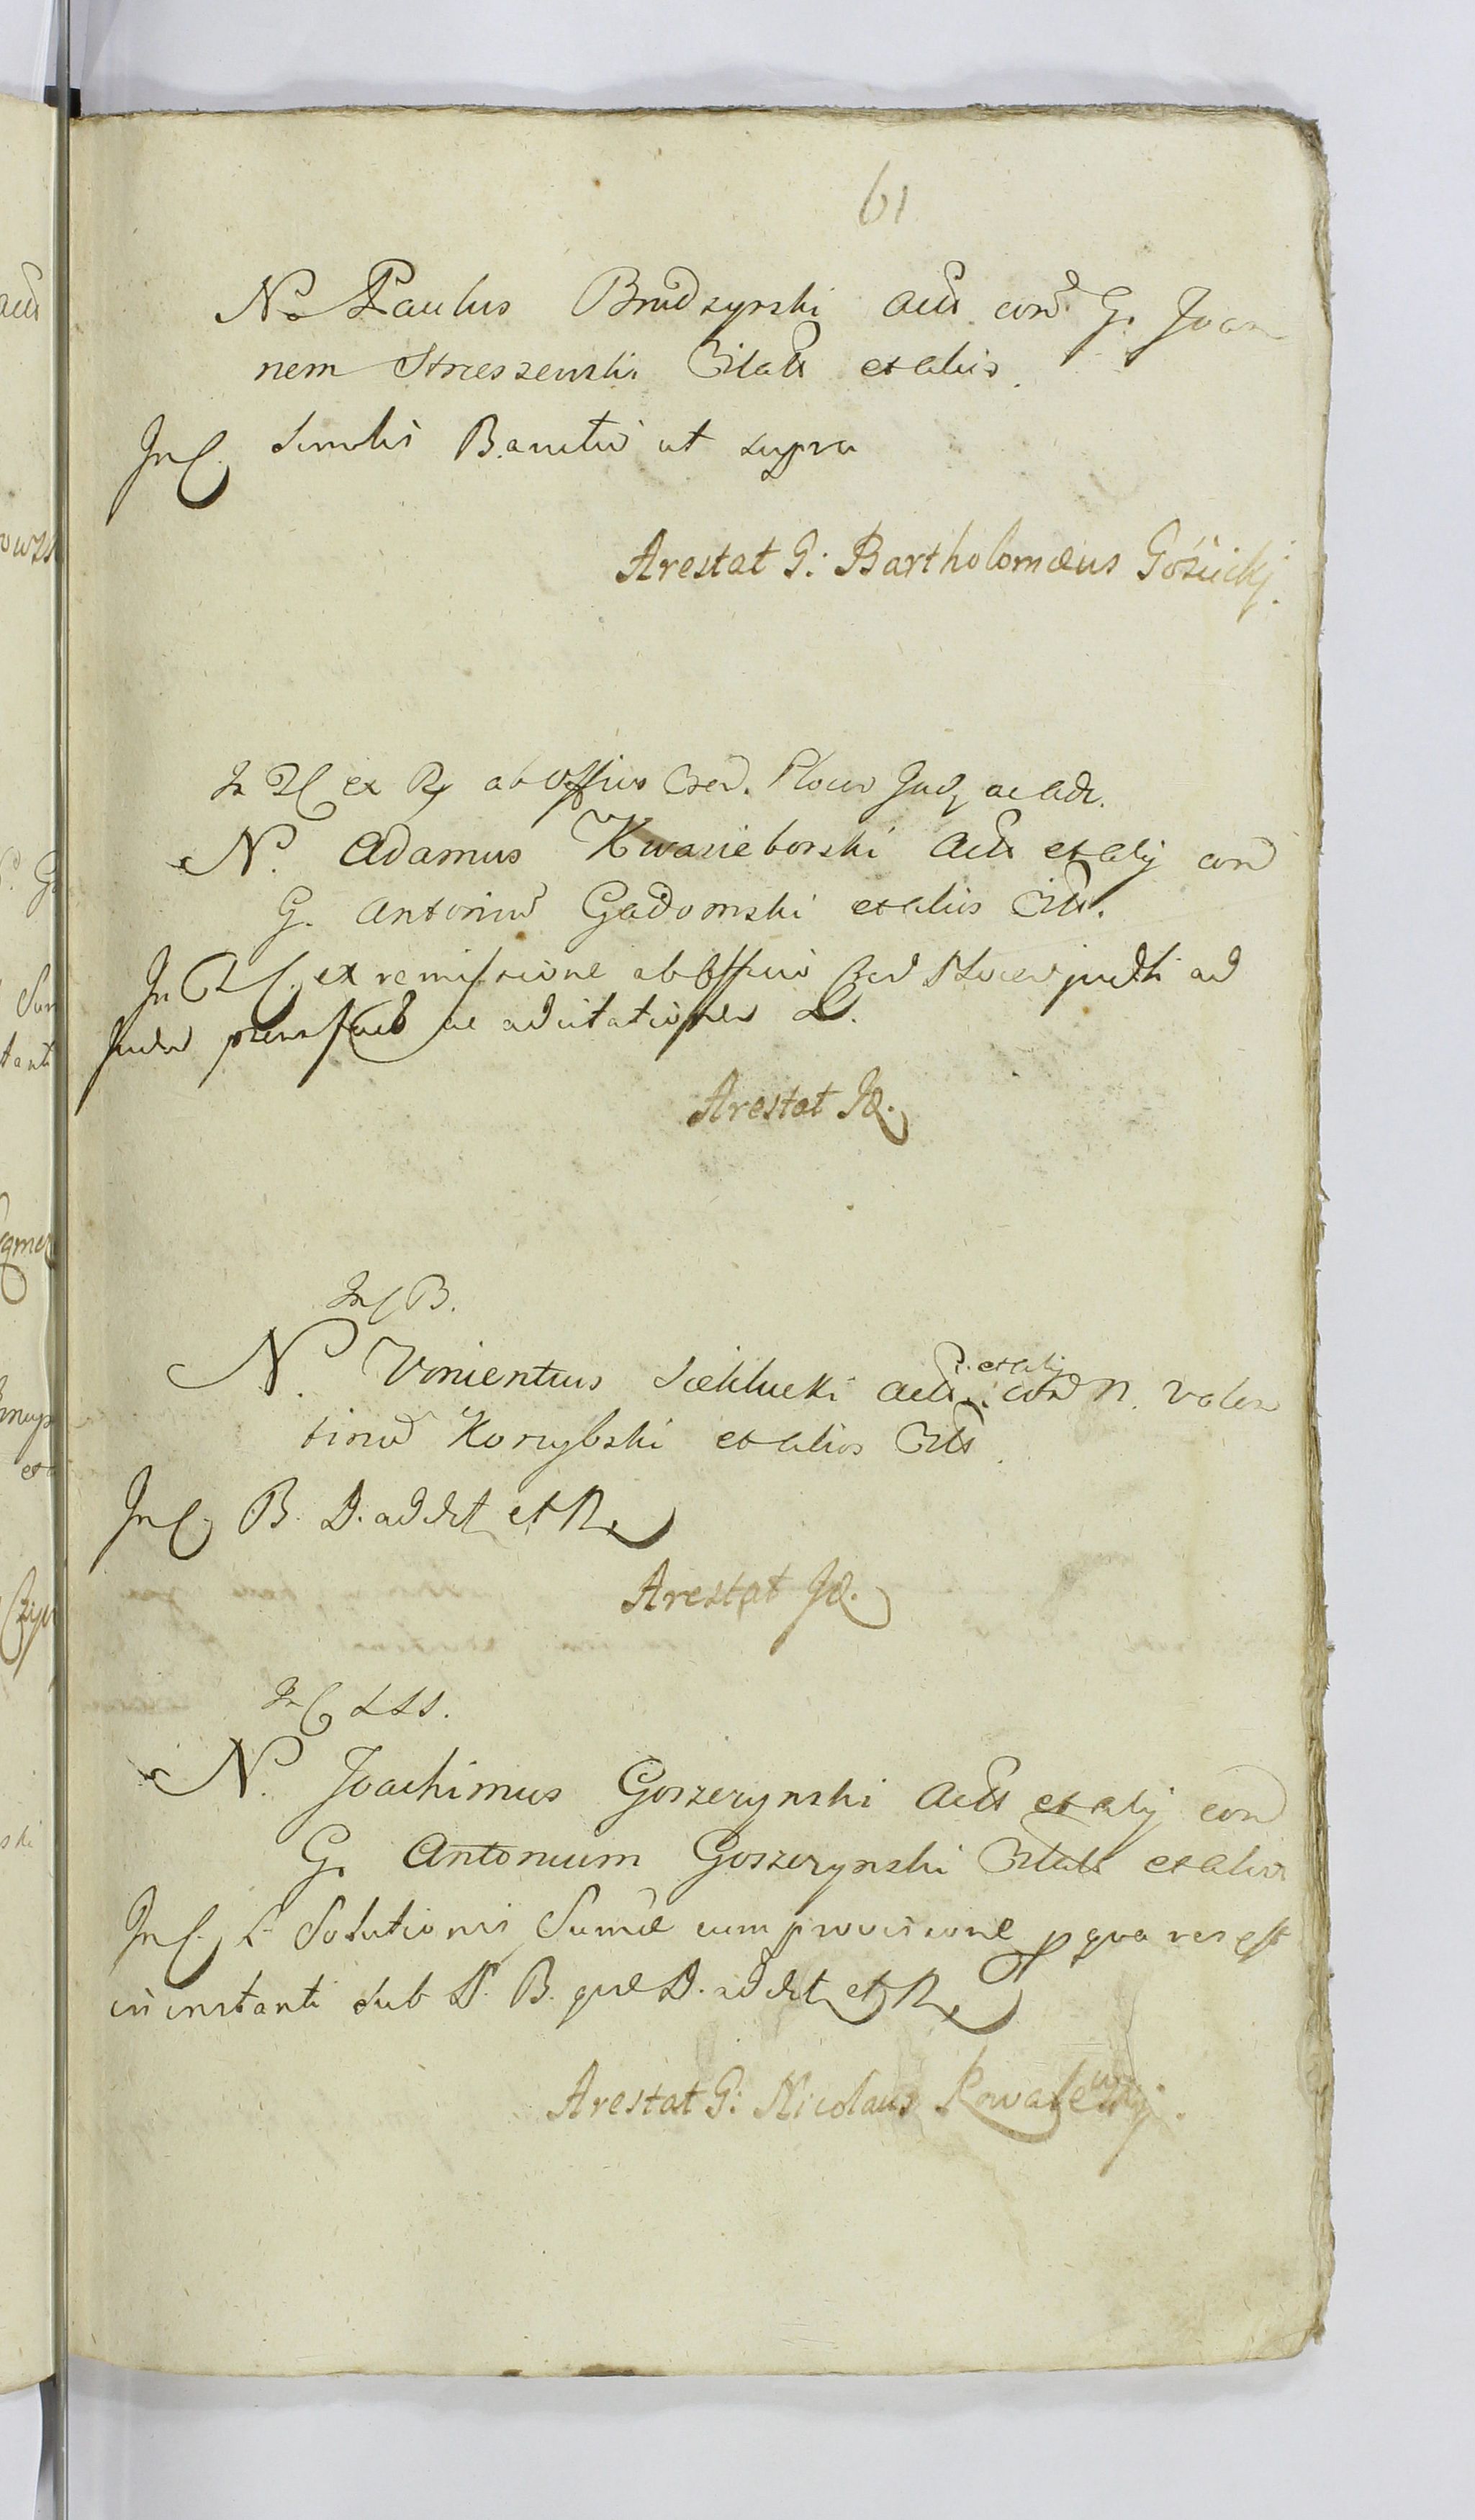 61
N. Paulus Brudzynski Actr con G. Joan
nem Strzeszewski Citatt et alios
In C. Similis Bannitio ut supra
Arestat G: Bartholomæus Gościckj.
ex Rx ab Officio Cren. Plocen Judx ac adc.
N. Adamus Kwasieborski Actr et alij con
G. Antonium Gadomski et alios Citt.
ex remissione ab Officio Cren Plocen
ac adcitationem
Arestat Id.
In C B.
N. Vincentius Sieklucki Actr et alij con N. Valen
tinum Korzybski et alios Citt
In C. B. D. ad dct et R
Arestat Id.
In C LSS.
N. Joachimus Goszczynski Actr et alij con
G. Antonium Goszczynski Citatt et alios
In C. L Solutionis Summæ cum provisione p qua res est
in instanti sub L. B. D. ad dct et R
Arestat G: Nicolaus Kowalewskj.